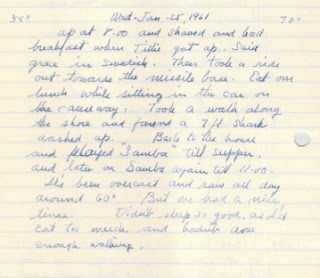 58° Wed. Jan 25, 1961 70°
up at 8.00 and shaved and had
breakfast when Tillie got up. Said
grace in Swedish. Then took a ride
out towards the missile base. Eat our
lunch while sitting in the car on
the causeway. Took a walk along
the shore and found a 7 ft Shark
washed up. Back to the house
and played "Samba" till supper.
and later on Samba again till 11:00.
It's been overcast and raw all day
around 60° But we had a nice
time. Didn't sleep so good, as I'd
eat too much and hadn't done
enough walking.